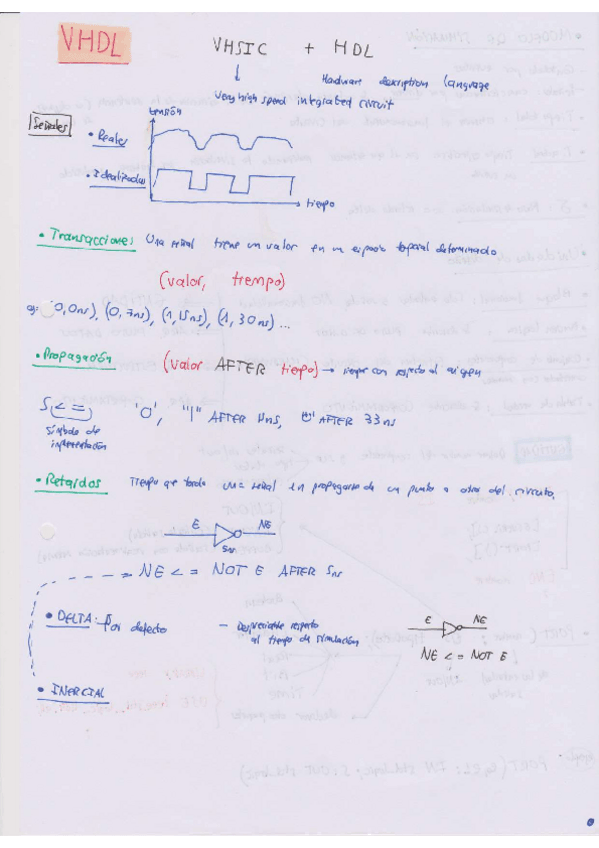 VHDL
VHSIC + HDL
Hardware description language
Very high speed integrated circuit
Señales
tensión
• Reales
• Idealizadas
tiempo
• Transacciones Una señal tiene un valor en un espacio temporal determinado
(valor, tiempo)
eg: (0,0ns), (0, 7ns), (1, 15ns), (1, 30ns) ...
• Propagación (valor AFTER tiempo) → tiempo con respecto al origen
S <= '0', "1" AFTER 4ns, '0' AFTER 33ns
Símbolo de
• Retardos Tiempo que tarda una señal en propagarse de un punto a otro del circuito.
E NE
5ns
NE <= NOT E AFTER 5ns
• DELTA: Por defecto — Despreciable respecto
al tiempo de simulación
E NE
NE <= NOT E
• INERCIAL